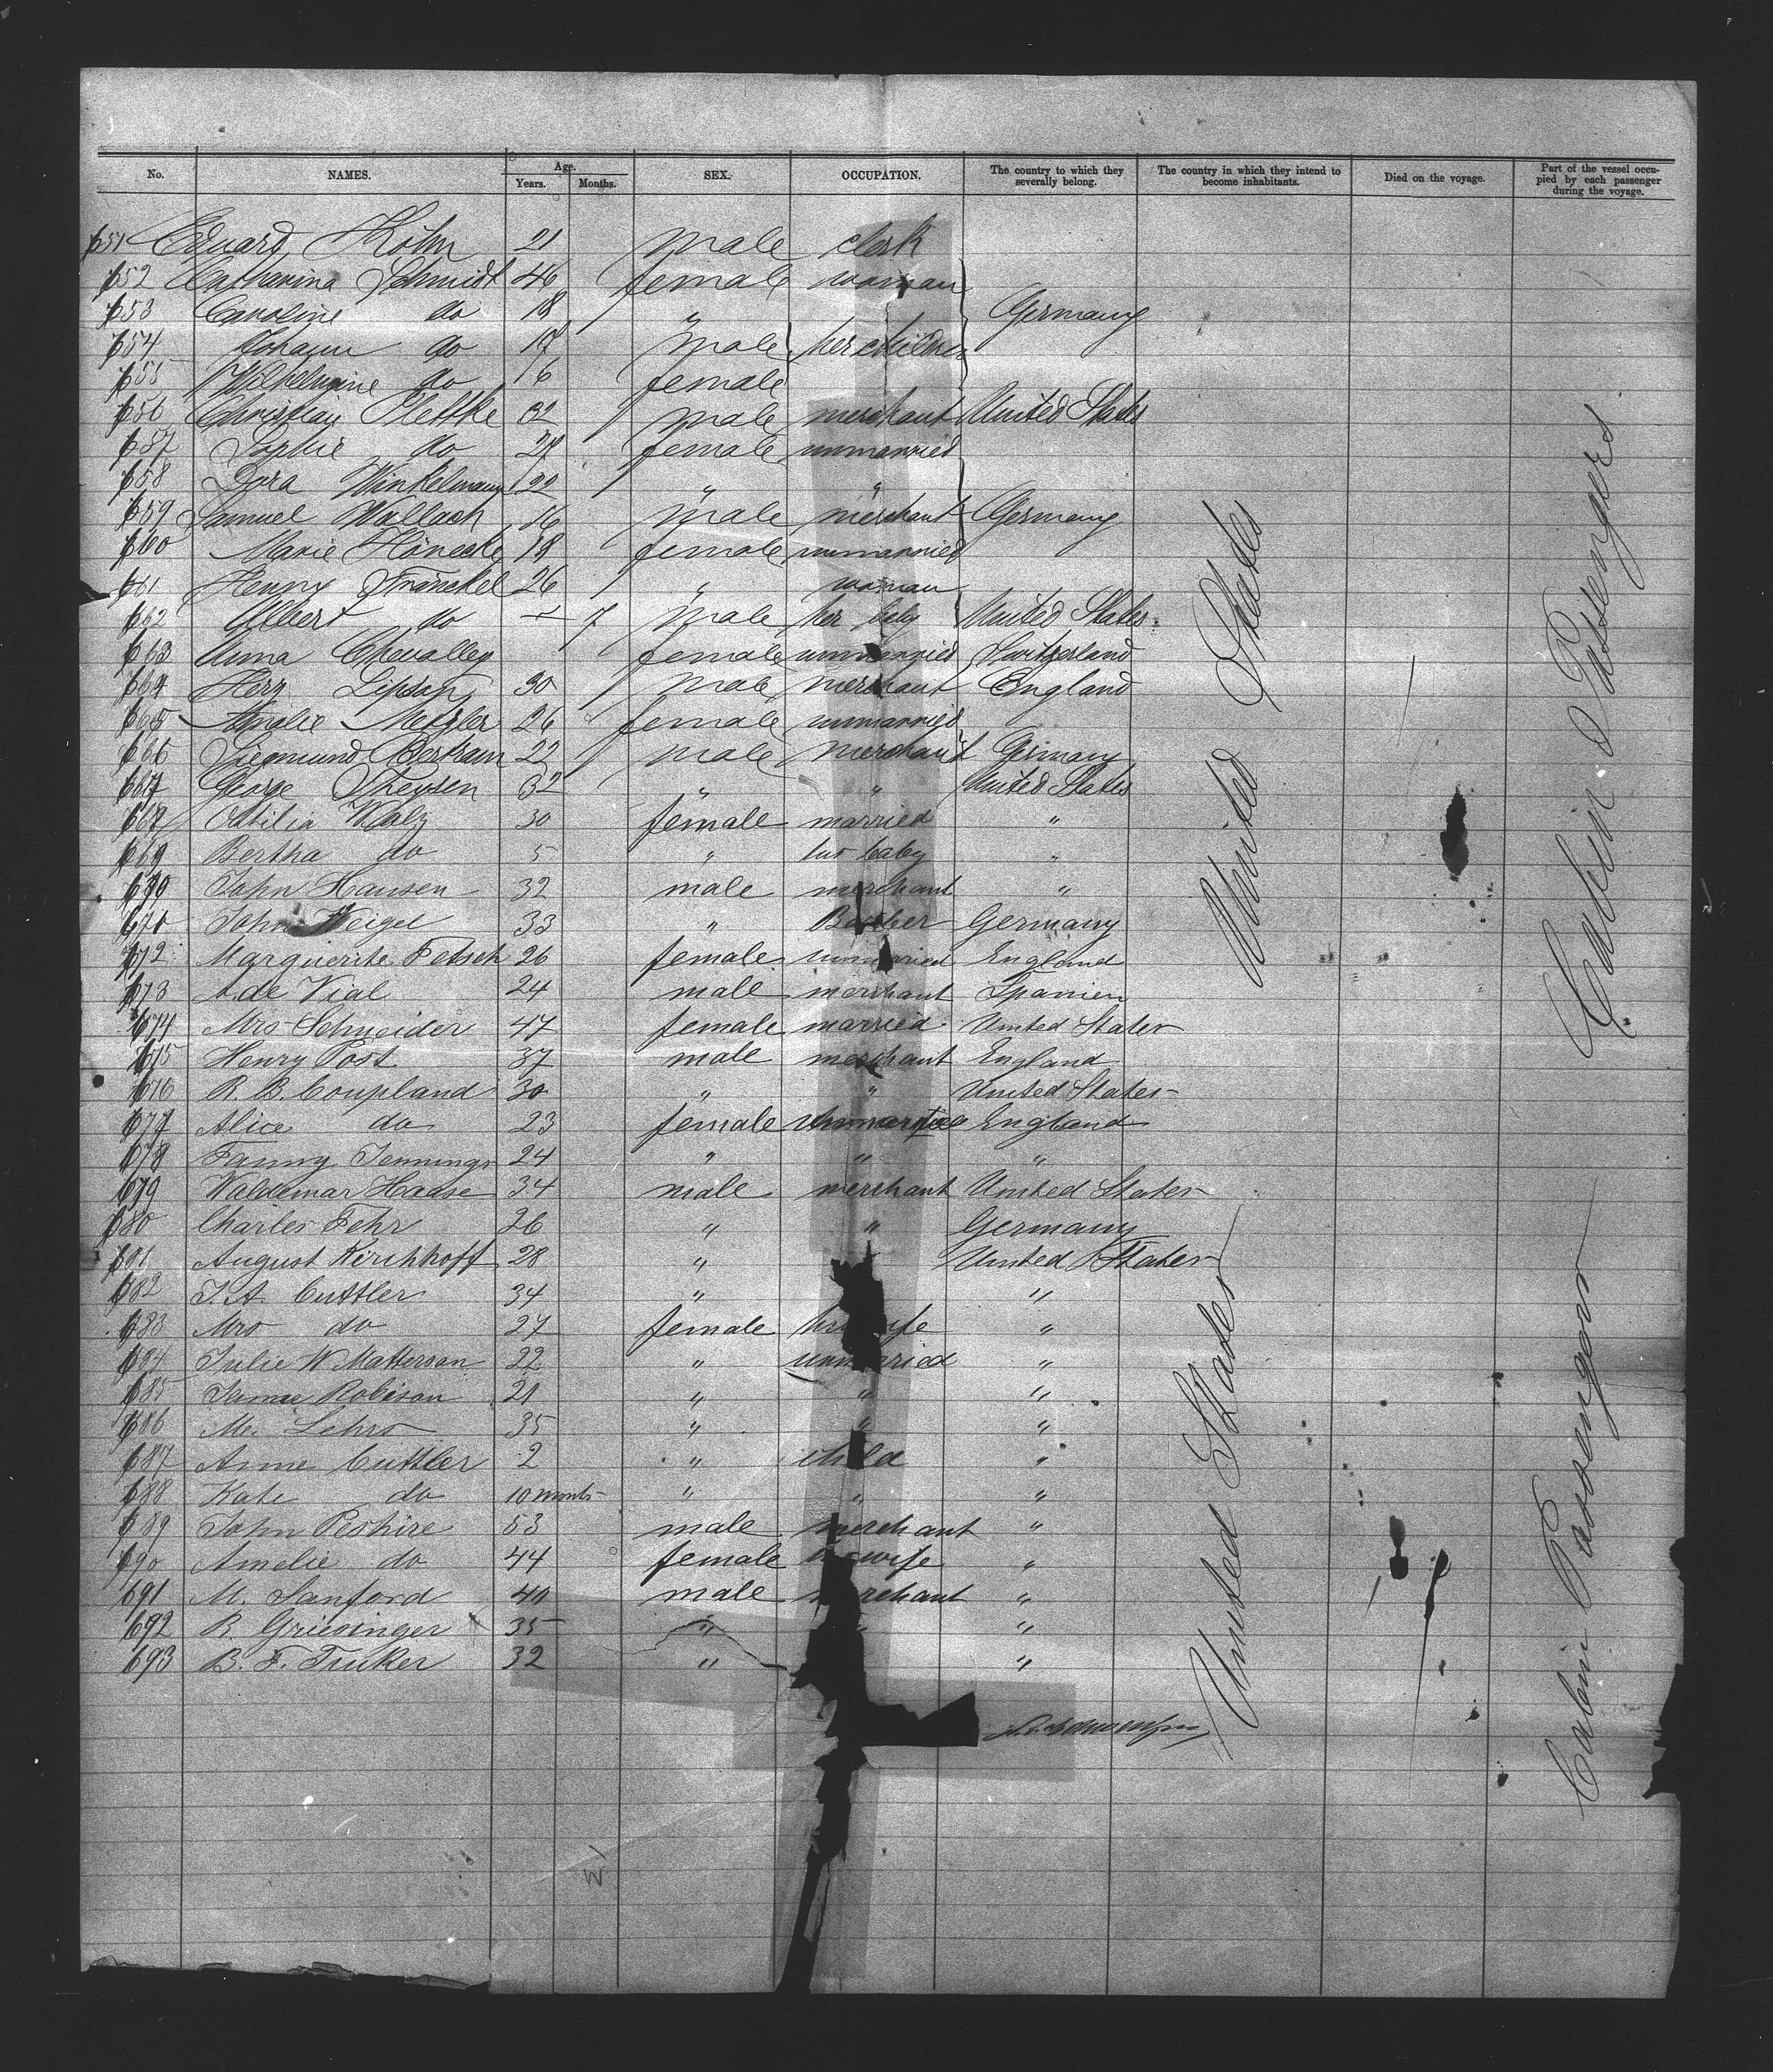 No. NAMES. Age. Years. Months. SEX. OCCUPATION. The country to which they severally belong. The country in which they intend to become inhabitants. Died on the voyage. Part of the vessel occupied by each passenger during the voyage.
651 Eduard Höhn 21 male clerk
652 Catharina Schmidt 46 female woman
653 Caroline do 18 " Germany
654 Johann do 17 male her children
655 Wilhelmine do 16 female
656 Christian Plettke 32 male merchant United States
657 Sophie do 27 female unmarried
658 Dora Winkelmann 22 " "
659 Samuel Wallach 16 male merchant Germany
660 Marie Hönecke 18 female unmarried
661 Henny Fränckel 26 " woman
662 Albert do 7 male her baby United States
663 Anna Chevalley female unmarried Switzerland
664 Herz Lipsky 30 male merchant England
665 Amalie Metzler 26 female unmarried
666 Siegmund Bertram 22 male merchant Germany
667 George Theysen 32 " " United States
668 Ottilia 30 female married "
669 Bertha do 5 " her baby "
John Hansen 32 male merchant "
John Weigel 33 " Germany
672 Marguerite Fetsch 26 female unmarried England
673 A. de Vial 24 male merchant Spanien
674 Mrs Schneider 47 female married United States
675 Henry Post 37 male merchant England
676 R. B. Coupland 30 " " United States
677 Alice do 23 female unmarried England
678 Fanny Jennings 24 " " "
679 Waldemar Haase 34 male merchant United States
680 Charles Fehr 26 " " Germany
681 August Kirchhoff 28 " United States
682 J. A. Cuttler 34 " "
683 Mrs do 27 female his wife "
684 Julie W Matterson 22 " unmarried "
685 Robison 21 " " "
686 Me. Lehrs 35 " " "
687 Anne Cuttler 2 " child "
688 Kate do 10 months " " "
689 John Peshire 53 male merchant "
690 Amelie do 44 female his wife "
691 M. Sanford 40 male merchant "
692 R Griesinger 35 " " "
693 B. F. Truker 32 " "
United States
Cabin Passengers
United States
Cabin Passengers